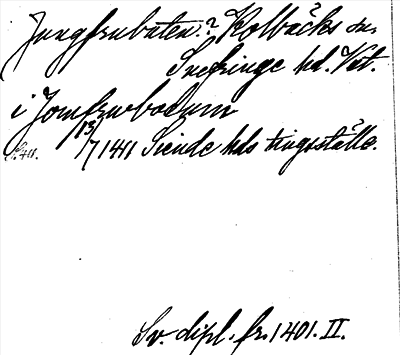 Jungfrubåten? Kolbäcks sn.
Snefringe hd. Vstm.
i Jomfrwbodum
13/7 1411 Siende hds tingsställe.
S. 411.
Sv. dipl. fr. 1401. II.